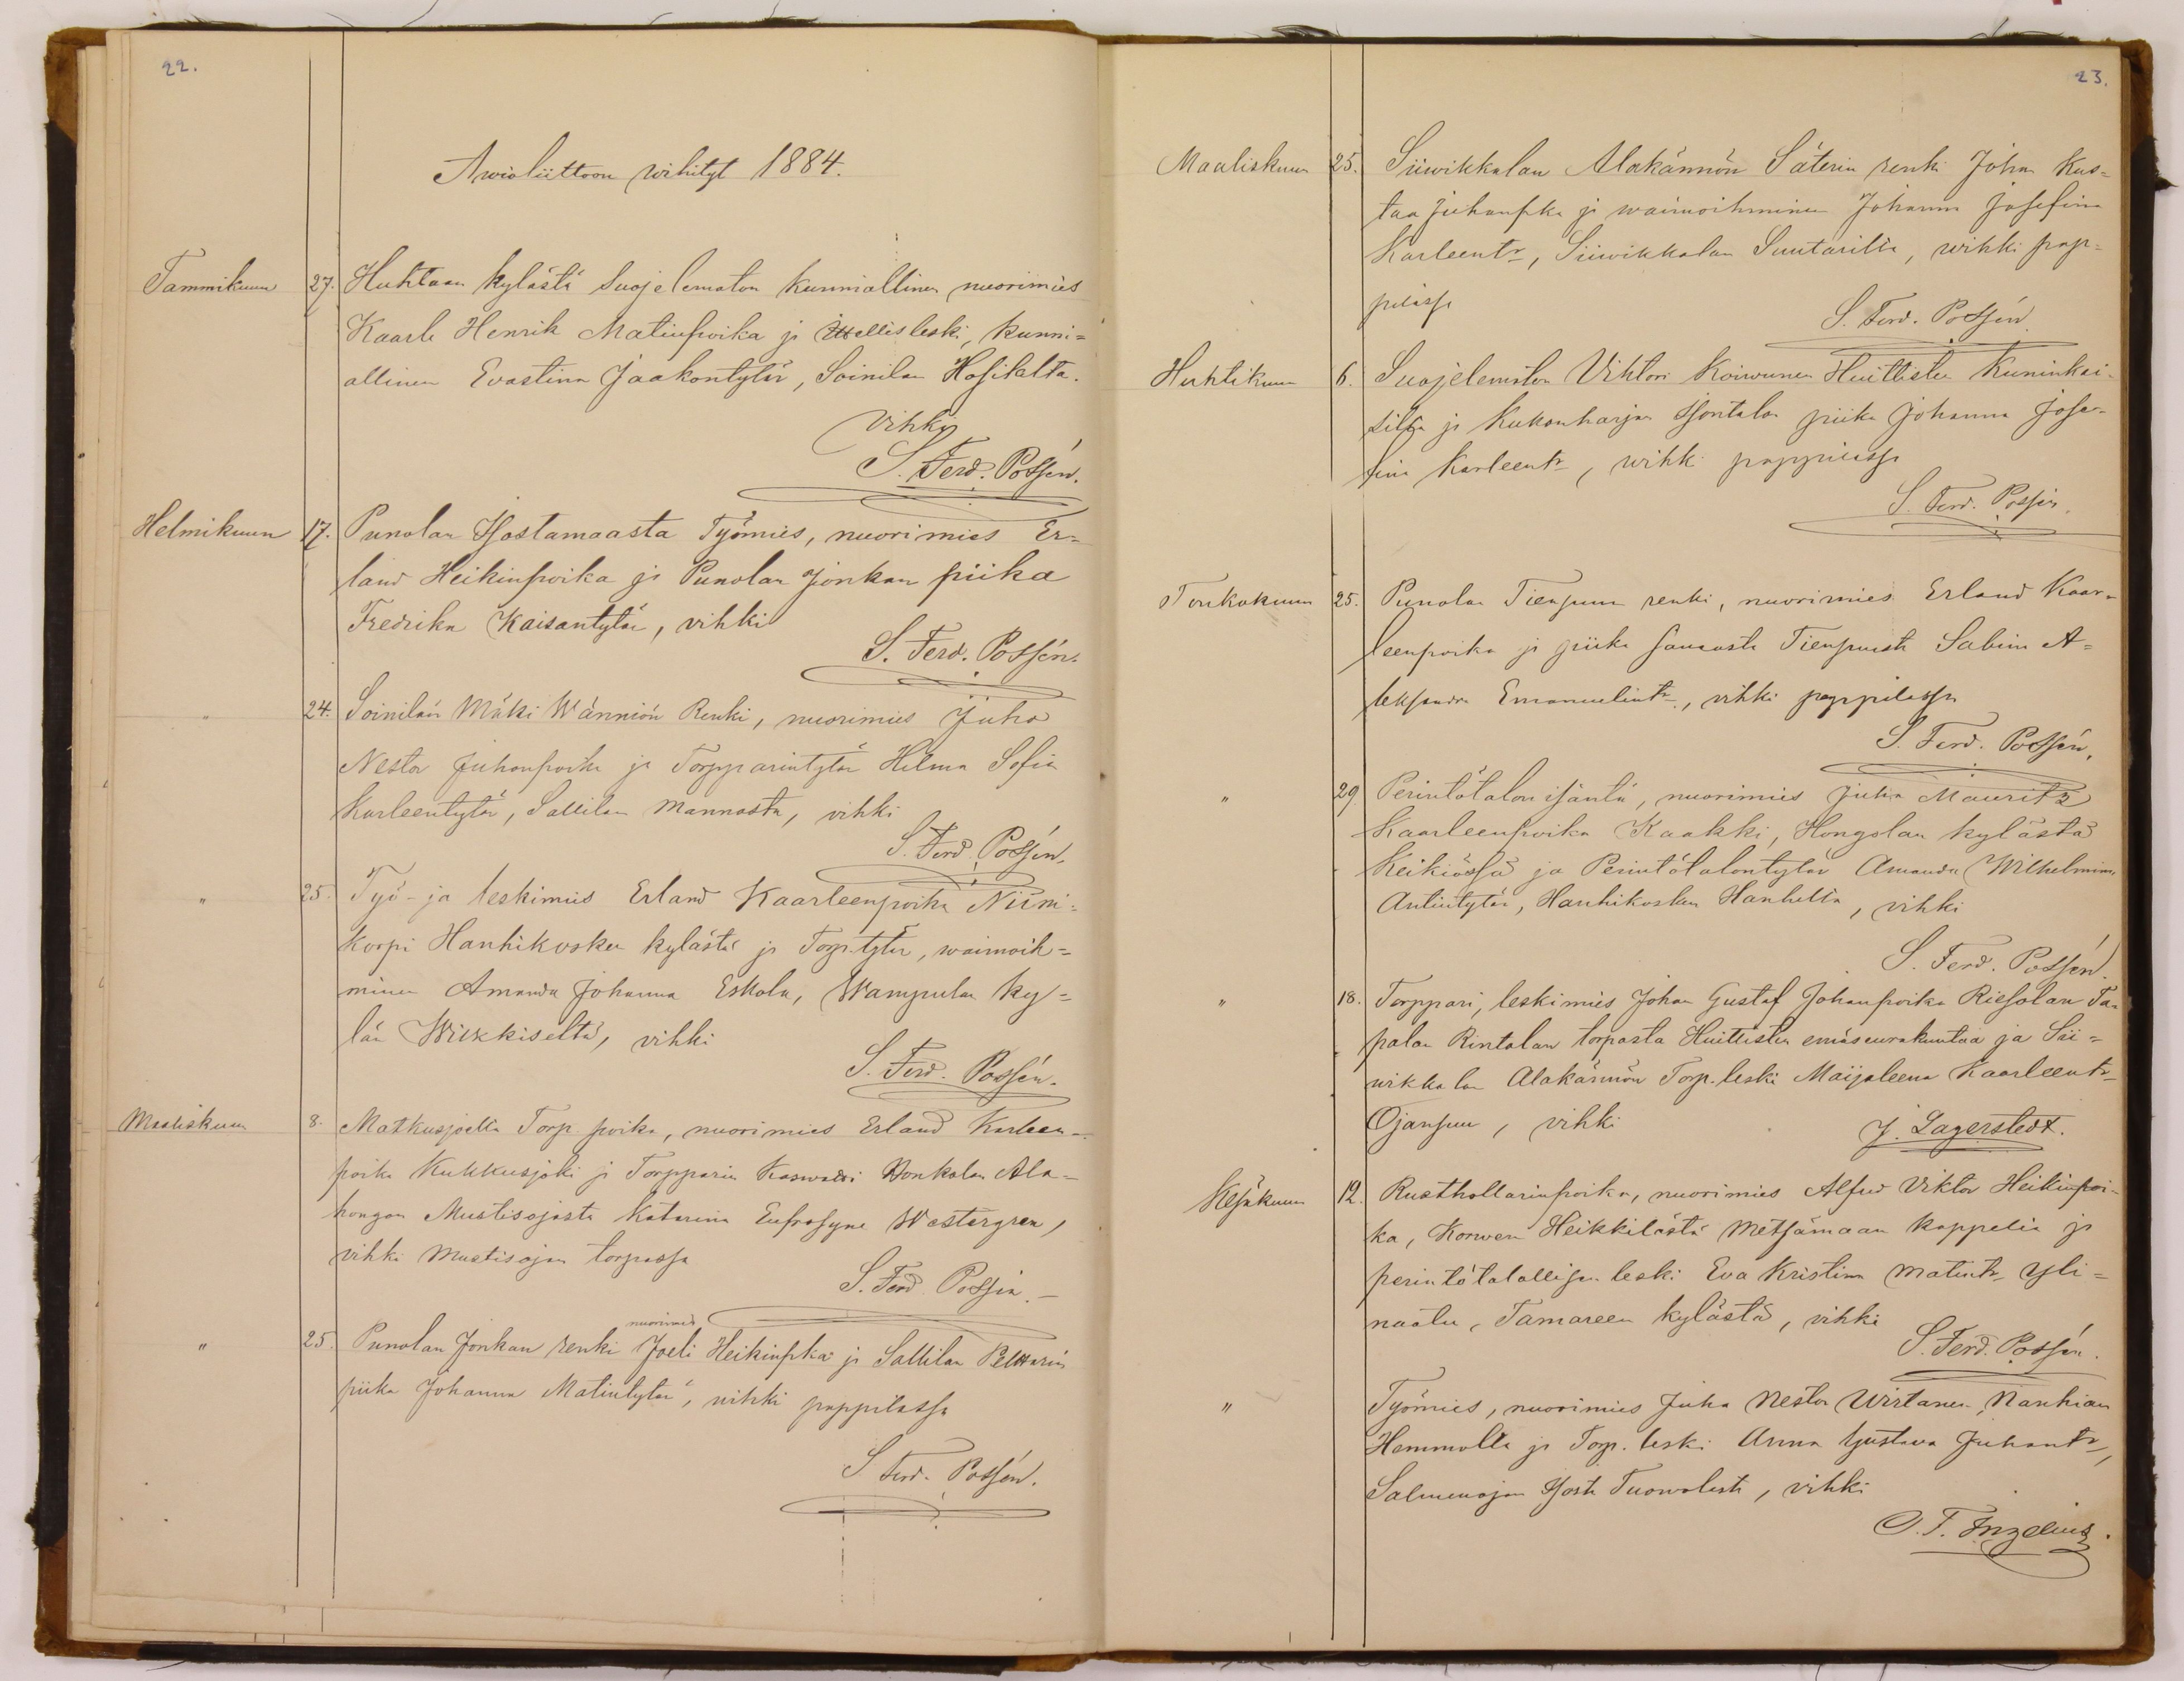 22.
Awioliittoon wihityt 1884.
Tammikuun 27. Huhtaan kylästä Suojelematon kunniallinen nuorimies
Kaarle Henrik Matinpoika ja Itsellisleski, kunni=
allinen Evastina Jaakontytär, Soinilan Hosikalta.
Vihki
S. Ferd. Possén.
Helmikuun 17. Punolan Isostamaasta Työmies, nuorimies Er=
land Heikinpoika ja Punolan Jonkan piika
Fredrika Kaisantytär, vihki
S. Ferd. Possén.
" 24. Soinilan Mäki Wännión Renki, nuorimies Juho
Nestor Juhonpoika ja Torpparintytär Helma Sofia
Karleentytär, Sallilan Mannasta, vihki
S. Ferd. Possén.
" 25. Työ- ja leskimies Erland Kaarleenpoika Niini=
korpi Hanhikosken kylästä ja Torp.tytär, waimoih=
minen Amanda Johanna Eskola, Wampulan ky=
län Wirkkiseltä, vihki
S. Ferd. Possén.
Maaliskuun 8. Matkusjoelta Torp. poika, nuorimies Erland Karleen-
poika Kukkusjoki ja Torpparin Kaswatti Ronkolan Ala=
hongon Mustisojasta Katarina Eufrosyne Westergren,
vihki Mustisojan torpassa
S. Ferd. Possén. -
" 25. Punolan Jonkan renki nuorimies Joeli Heikinpka ja Sallilan Pelttarin
piika Johanna Matintytär, vihki pappilassa
S Ferd. Possén.
23.
Maaliskuun 25. Siiwikkalan Alakännön Säterin renki Johan Kus=
taa Juhanpka ja waimoihminen Johanna Josefina
Karleentr, Siiwikkalan Suutarilta, wihki pap=
pilassa
S. Ferd. Possén
Huhtikuun 6. Suojelematon Vihtori Koiwunen Huittisten Kuninkai-
silta ja Kukonharjan Isontalon piika Johanna Jose-
fina Karleentr, wihki pappilassa
S. Ferd. Possén.
Toukokuun 25. Punolan Tienpuun renki, nuorimies Erland Kaar-
leenpoika ja piika samasta Tienpuusta Sabina A=
leksandra Emanuelintr, vihki pappilassa
S. Ferd. Possén.
" 29 Perintötalon isäntä, nuorimies Juha Mauritz
Kaarleenpoika Kaakki, Hongolan kylästä
Keikiössä ja Perintötalontytär Amanda Wilhelmina
Antintytär, Hanhikosken Hanhelta, vihki
S. Ferd. Possén.
" 18. Torppari, leskimies Johan Gustaf Johanpoika Riesolan Ta-
palan Rintalan torpasta Huittisten emäseurakuntaa ja Sii=
wikkalan Alakännön Torp. leski Maijaleena Kaarleentr
Ojanpuu, vihki
J. Lagerstedt.
Kesäkuun 12. Rusthollarinpoika, nuorimies Alfred Viktor Heikinpoi-
ka, Korwen Heikkilästä Metsämaan kappelia ja
perintötalollisen leski Eva Kristina Matintr Yli=
naatu, Tamareen kylästä, vihki
S. Ferd. Possén.
" Työmies, nuorimies Juha Nestor Wirtanen Nanhian
Hemmolta ja Torp. leski Anna Gustava Juhantr,
Salmenojan Tuomolasta, vihki